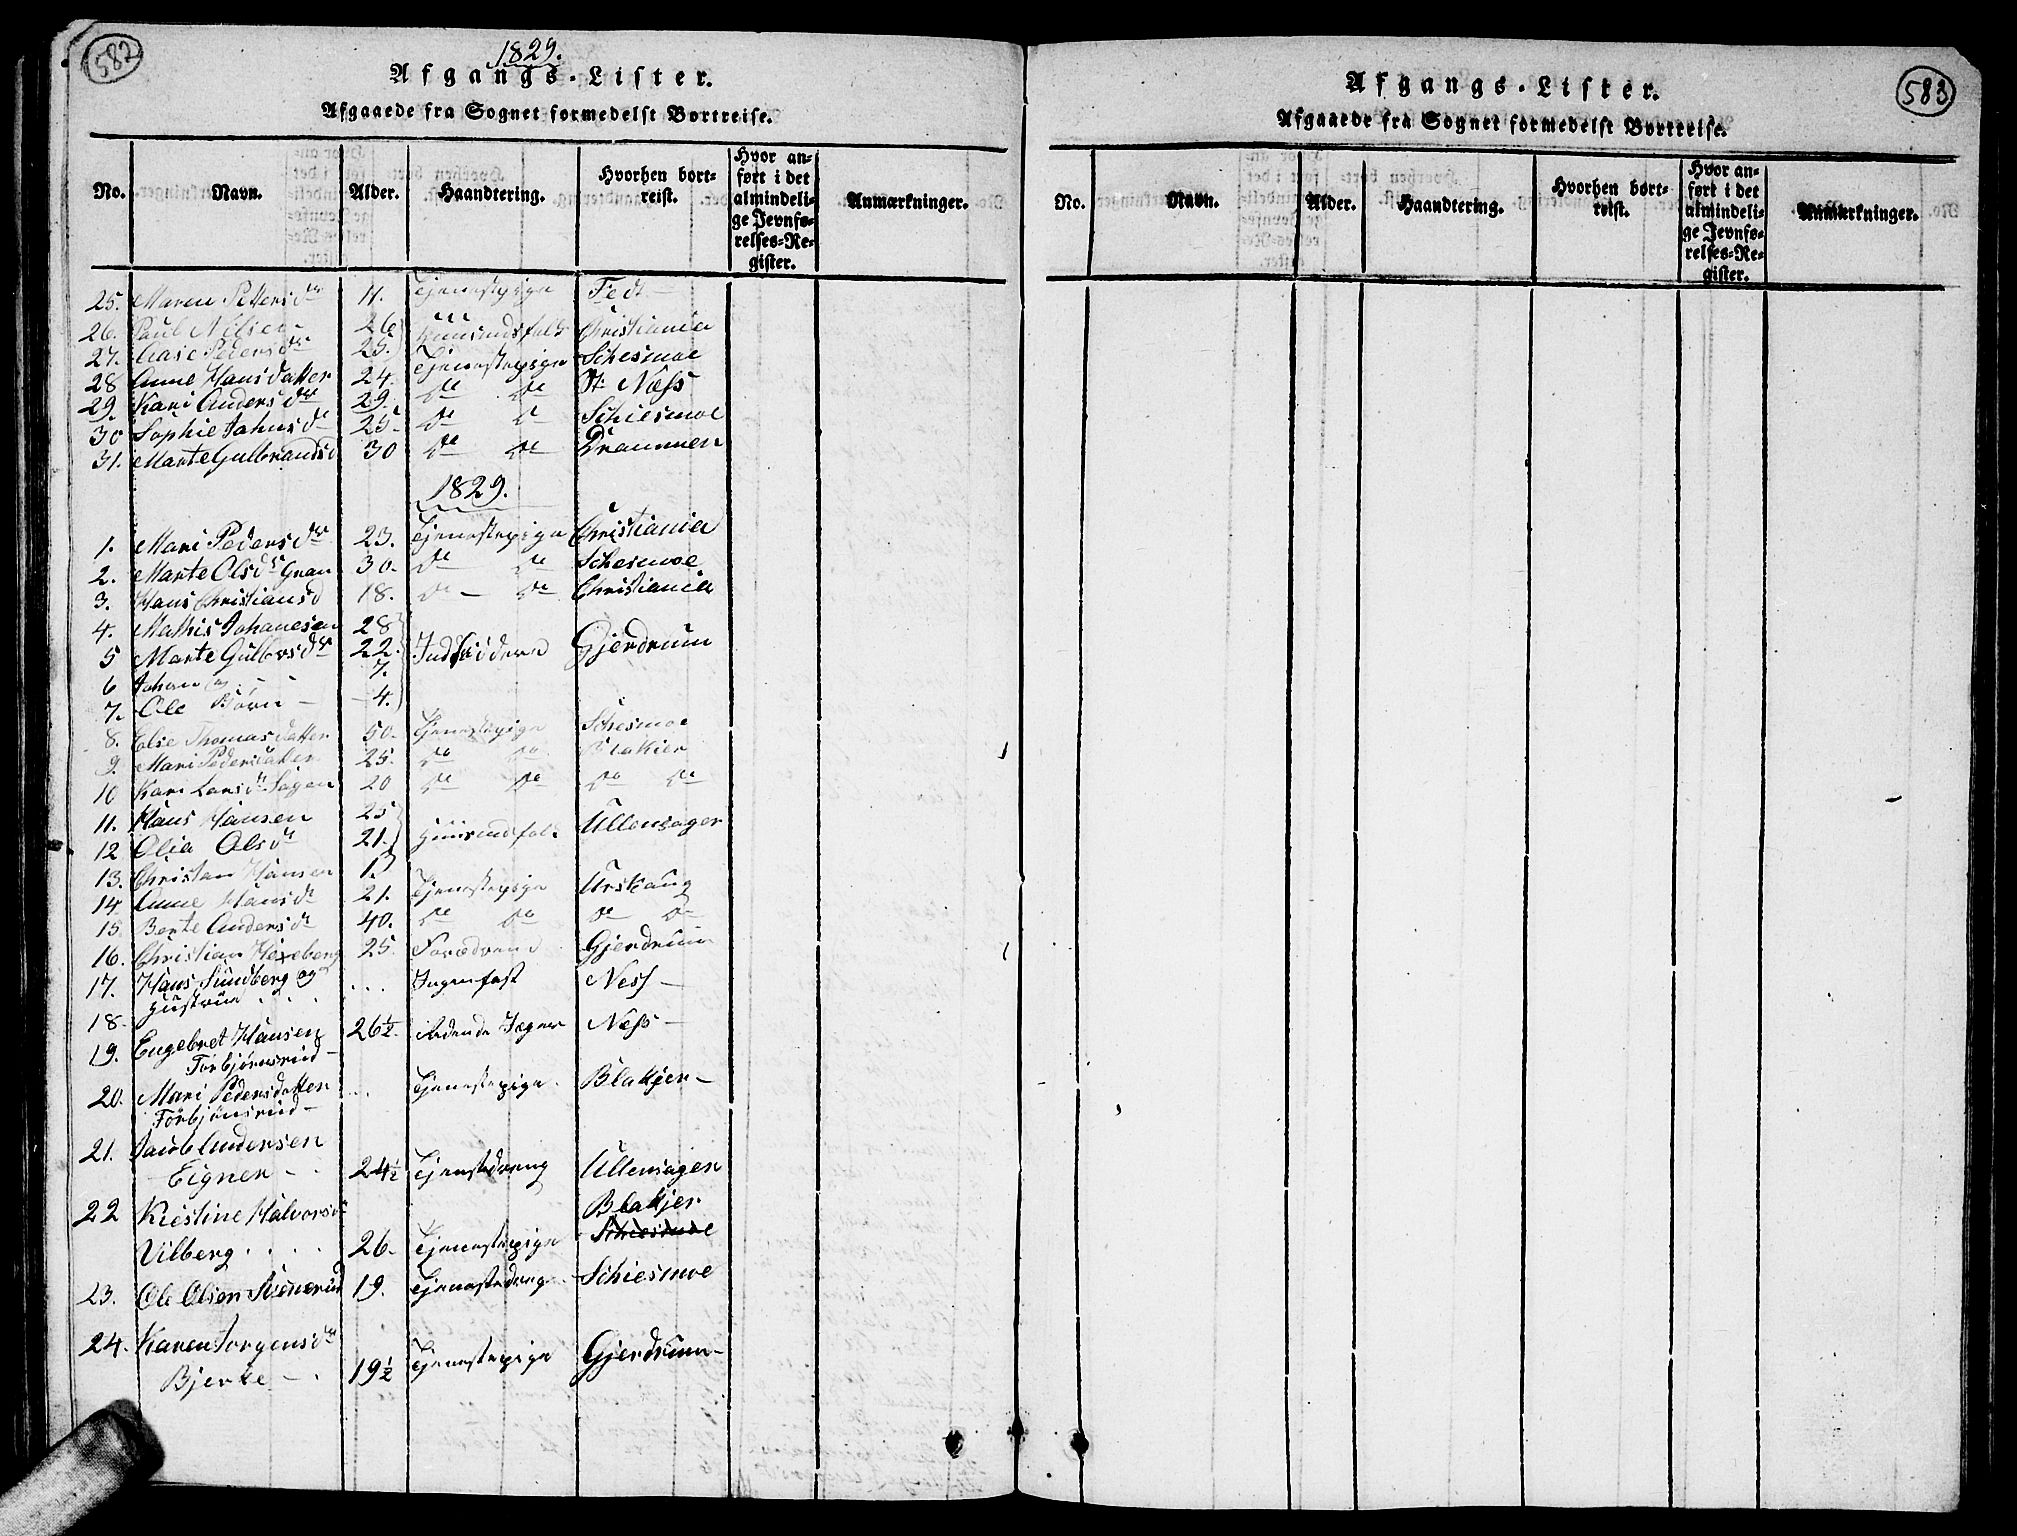 582
1829.
Afgangs-Lister.
Afgaaede fra Sognet formedelst Bortreise.
No. Navn. Alder. Haandtering. Hvorhen bortreist. Hvor anført i det almindelige Jevnførelses-Register. Anmærkninger.
25. Maren Pettersdr 11. Tjenestepige Fedt
26. Paul Nilsen 26 Huusmdsfolk Christiania
27. Aase Pedersdr 25. Tjenestepige Schesmoe
28 Anne Hansdatter 24. De De N: Næss
29. Kari Andersdr 29. De D Schiesmoe
30 Sophie Jahnsd 25 De De Drammen
31. Marte Gulbrandsd 30
1829.
1. Mari Pedersdr 23. Tjenestepige Christiania
2. Marte Olsdr Gran 30. De De Schesmoe
3. Hans Christiansd 18. De De Christiania
4. Mathis Johanesen 28
5 Marte Gulbrsdr 22. Indsiddere Gjerdrum
6 Johan og 7.
7. Ole Børn 4.
8. Else Thomasdatter 50. Tjenestepige Schesmoe
9. Mari Pedersdatter 25. De De Blakier
10 Kari Larsdr Sagen 20 De De De De
11. Hans Hansen 25
12 Olia Olsdr 21. Huusmdsfolk Ullensager
13. Christian Hansen 1
14 Anne Hansdr 21. Tjenestepige Urskaug
15 Berte Andersdr 40. De De De De
16. Christian Hexeberg 25. Gjerdrum
17. Hans Sundberg og ... Ness
18. Hustrue
19. Engebret Hansen 26½. Jæger Næss
Torbjørnsrud
20. Mari Pedersdatter ... Tjenestepige. Blakjer
Torbjönsrud
21. Jacob Andersen
Eigner 24½ Tjenstedreng Ullensager
22 Kiestine Halvorsdr Blakjer
Vilberg 26. Tjenestepige Schiesmoe
23. Ole Olsen 19. Tjenestedreng Schiesmoe
24. Karen Jorgensdr
Bjerke 19½ Tjenestepige Gjerdrum
583
Afgangs-Lister.
Afgaaede fra Sognet formedelst Bortreise.
No. Navn. Alder. Haandtering. Hvorhen bortreist. Hvor anført i det almindelige Jevnførelses-Register. Anmærkninger.